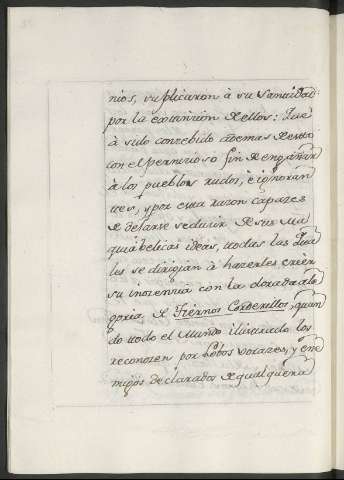 nios, suplicaron à su Santidad
por la extension de ellos: Que
à sido concebido ademas de esto
con el pernicioso fin de engañar
à los pueblos rudos, è ignoran
tes, y por esta razon capazes
de dejarse seducir de sus Ma
quiabelicas ideas, todas las Qua
les se dirigian à hazerles creèr
su inozensia con la dorada ale
goria de Tiernos Corderillos, quan
do todo el Mundo ilustrado los
reconozen por Lobos vorazes, y ene
migos declarados de qualquiera